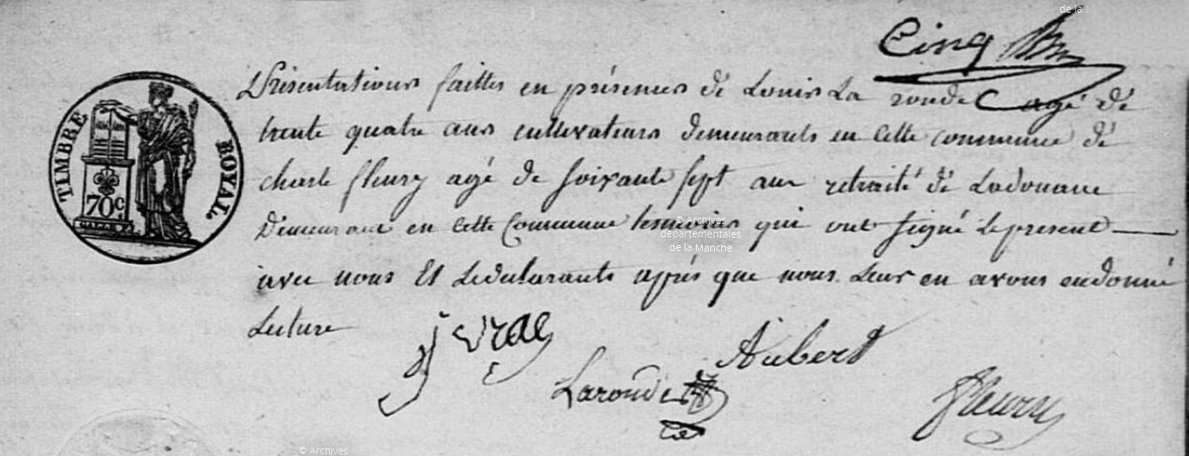 de la
Cinq
Présentations faittes en présences dé Louis La ronde agé dé
trente quatre ans cultivateurs demeurants en Cette commune dé
charle fleury agé de soixante sept ans retraité dé Ladouane
Demeurant en Cette Commune temoins qui ont signé Lepresent
avec nous Et Ledeclarants aprés que nous Leur en avons endonné
Lecture
TIMBRE ROYAL
70 c
© Archives
départementales
de la Manche
Aubert
Laronde
fleury
© Archives